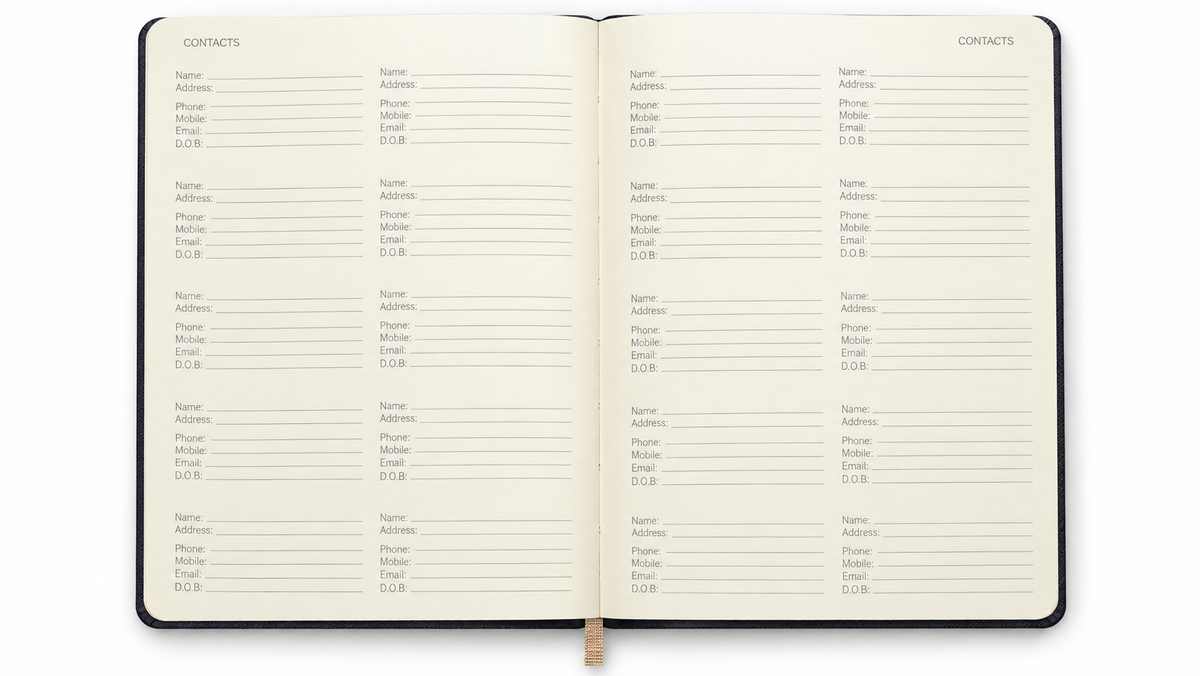 CONTACTS
Name:
Address:
Phone:
Mobile:
Email:
D.O.B:
Name:
Address:
Phone:
Mobile:
Email:
D.O.B:
Name:
Address:
Phone:
Mobile:
Email:
D.O.B:
Name:
Address:
Phone:
Mobile:
Email:
D.O.B:
Name:
Address:
Phone:
Mobile:
Email:
D.O.B:
Name:
Address:
Phone:
Mobile:
Email:
D.O.B:
Name:
Address:
Phone:
Mobile:
Email:
D.O.B:
Name:
Address:
Phone:
Mobile:
Email:
D.O.B:
Name:
Address:
Phone:
Mobile:
Email:
D.O.B:
Name:
Address:
Phone:
Mobile:
Email:
D.O.B:
CONTACTS
Name:
Address:
Phone:
Mobile:
Email:
D.O.B:
Name:
Address:
Phone:
Mobile:
Email:
D.O.B:
Name:
Address:
Phone:
Mobile:
Email:
D.O.B:
Name:
Address:
Phone:
Mobile:
Email:
D.O.B:
Name:
Address:
Phone:
Mobile:
Email:
D.O.B:
Name:
Address:
Phone:
Mobile:
Email:
D.O.B:
Name:
Address:
Phone:
Mobile:
Email:
D.O.B:
Name:
Address:
Phone:
Mobile:
Email:
D.O.B:
Name:
Address:
Phone:
Mobile:
Email:
D.O.B:
Name:
Address:
Phone:
Mobile:
Email:
D.O.B: